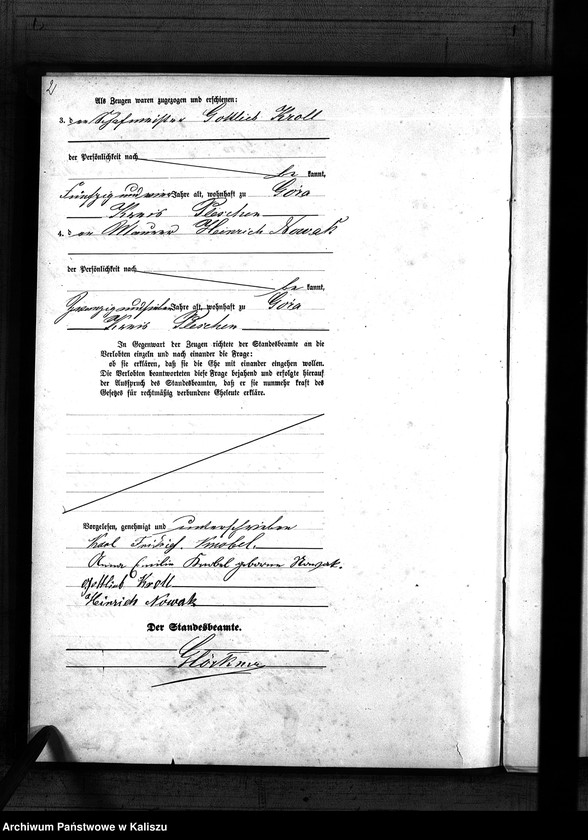 2
Als Zeugen waren zugezogen und erschienen:
3. der Schafmeister Gottlieb Kroll
der Persönlichkeit nach
be kannt,
fünfzig und vier Jahre alt, wohnhaft zu Gora
Kreis Pleschen
4. der Maurer Heinrich Nowak
der Persönlichkeit nach
be kannt,
zwanzig und sieben Jahre alt, wohnhaft zu Gora
Kreis Pleschen
In Gegenwart der Zeugen richtete der Standesbeamte an die
Verlobten einzeln und nach einander die Frage:
ob sie erklären, daß sie die Ehe mit einander eingehen wollen.
Die Verlobten beantworteten diese Frage bejahend und erfolgte hierauf
der Ausspruch des Standesbeamten, daß er sie nunmehr kraft des
Gesetzes für rechtmäßig verbundene Eheleute erkläre.
Vorgelesen, genehmigt und unterschrieben
Karl Knobel.
Anna Emilie Knobel geborne Nowak.
Gottlieb Kroll
Heinrich Nowak
Der Standesbeamte.
Glöckner
Archiwum Państwowe w Kaliszu